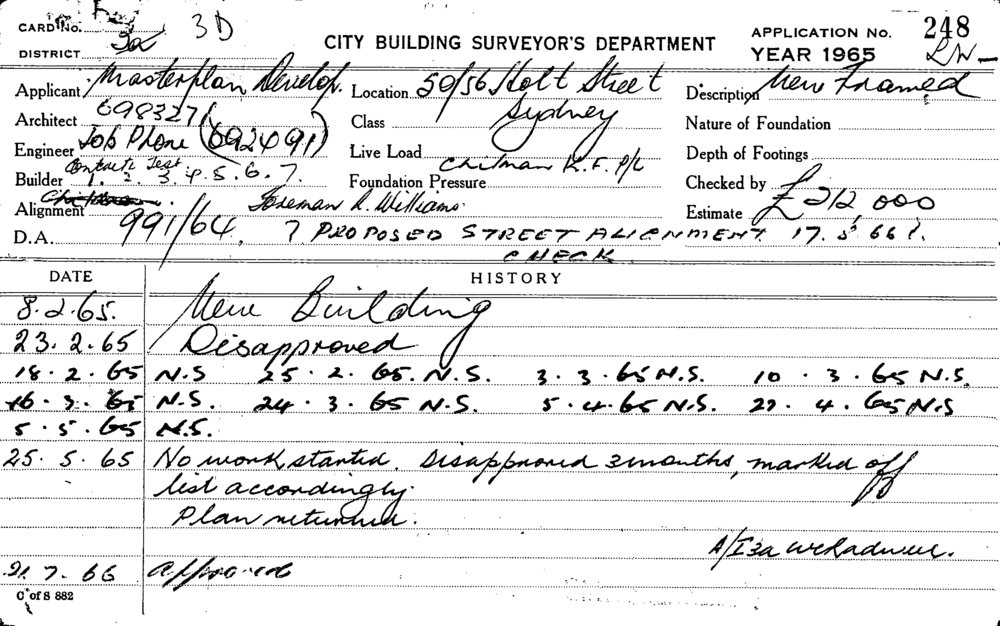 CARD No. 3D
DISTRICT
CITY BUILDING SURVEYOR'S DEPARTMENT
APPLICATION No. 248
YEAR 1965
Applicant Masterplan Develop. Location 50/56 Holt Street Description New Framed
Architect 698327 Class Sydney Nature of Foundation
Engineer Job Phone (692491) Live Load Chitman K.F. P/L Depth of Footings
Builder Concrete Test 1. 2. 3. 4. 5. 6. 7. Foundation Pressure Checked by
Alignment Foreman R. Williams Estimate £212,000
D.A. 991/64, 7 PROPOSED STREET ALIGNMENT 17.5.66?.
CHECK
DATE HISTORY
8.2.65. New Building
23.2.65 Disapproved
18.2.65 N.S 25.2.65. N.S. 3.3.65 N.S. 10.3.65 N.S.
16.3.65 N.S. 24.3.65 N.S. 5.4.65 N.S. 27.4.65 N.S
5.5.65 N.S.
25.5.65 No work started. Disapproved 3 months, marked off
list accordingly.
Plan returned.
A/I 3a
7.66 Approved
C of S 882